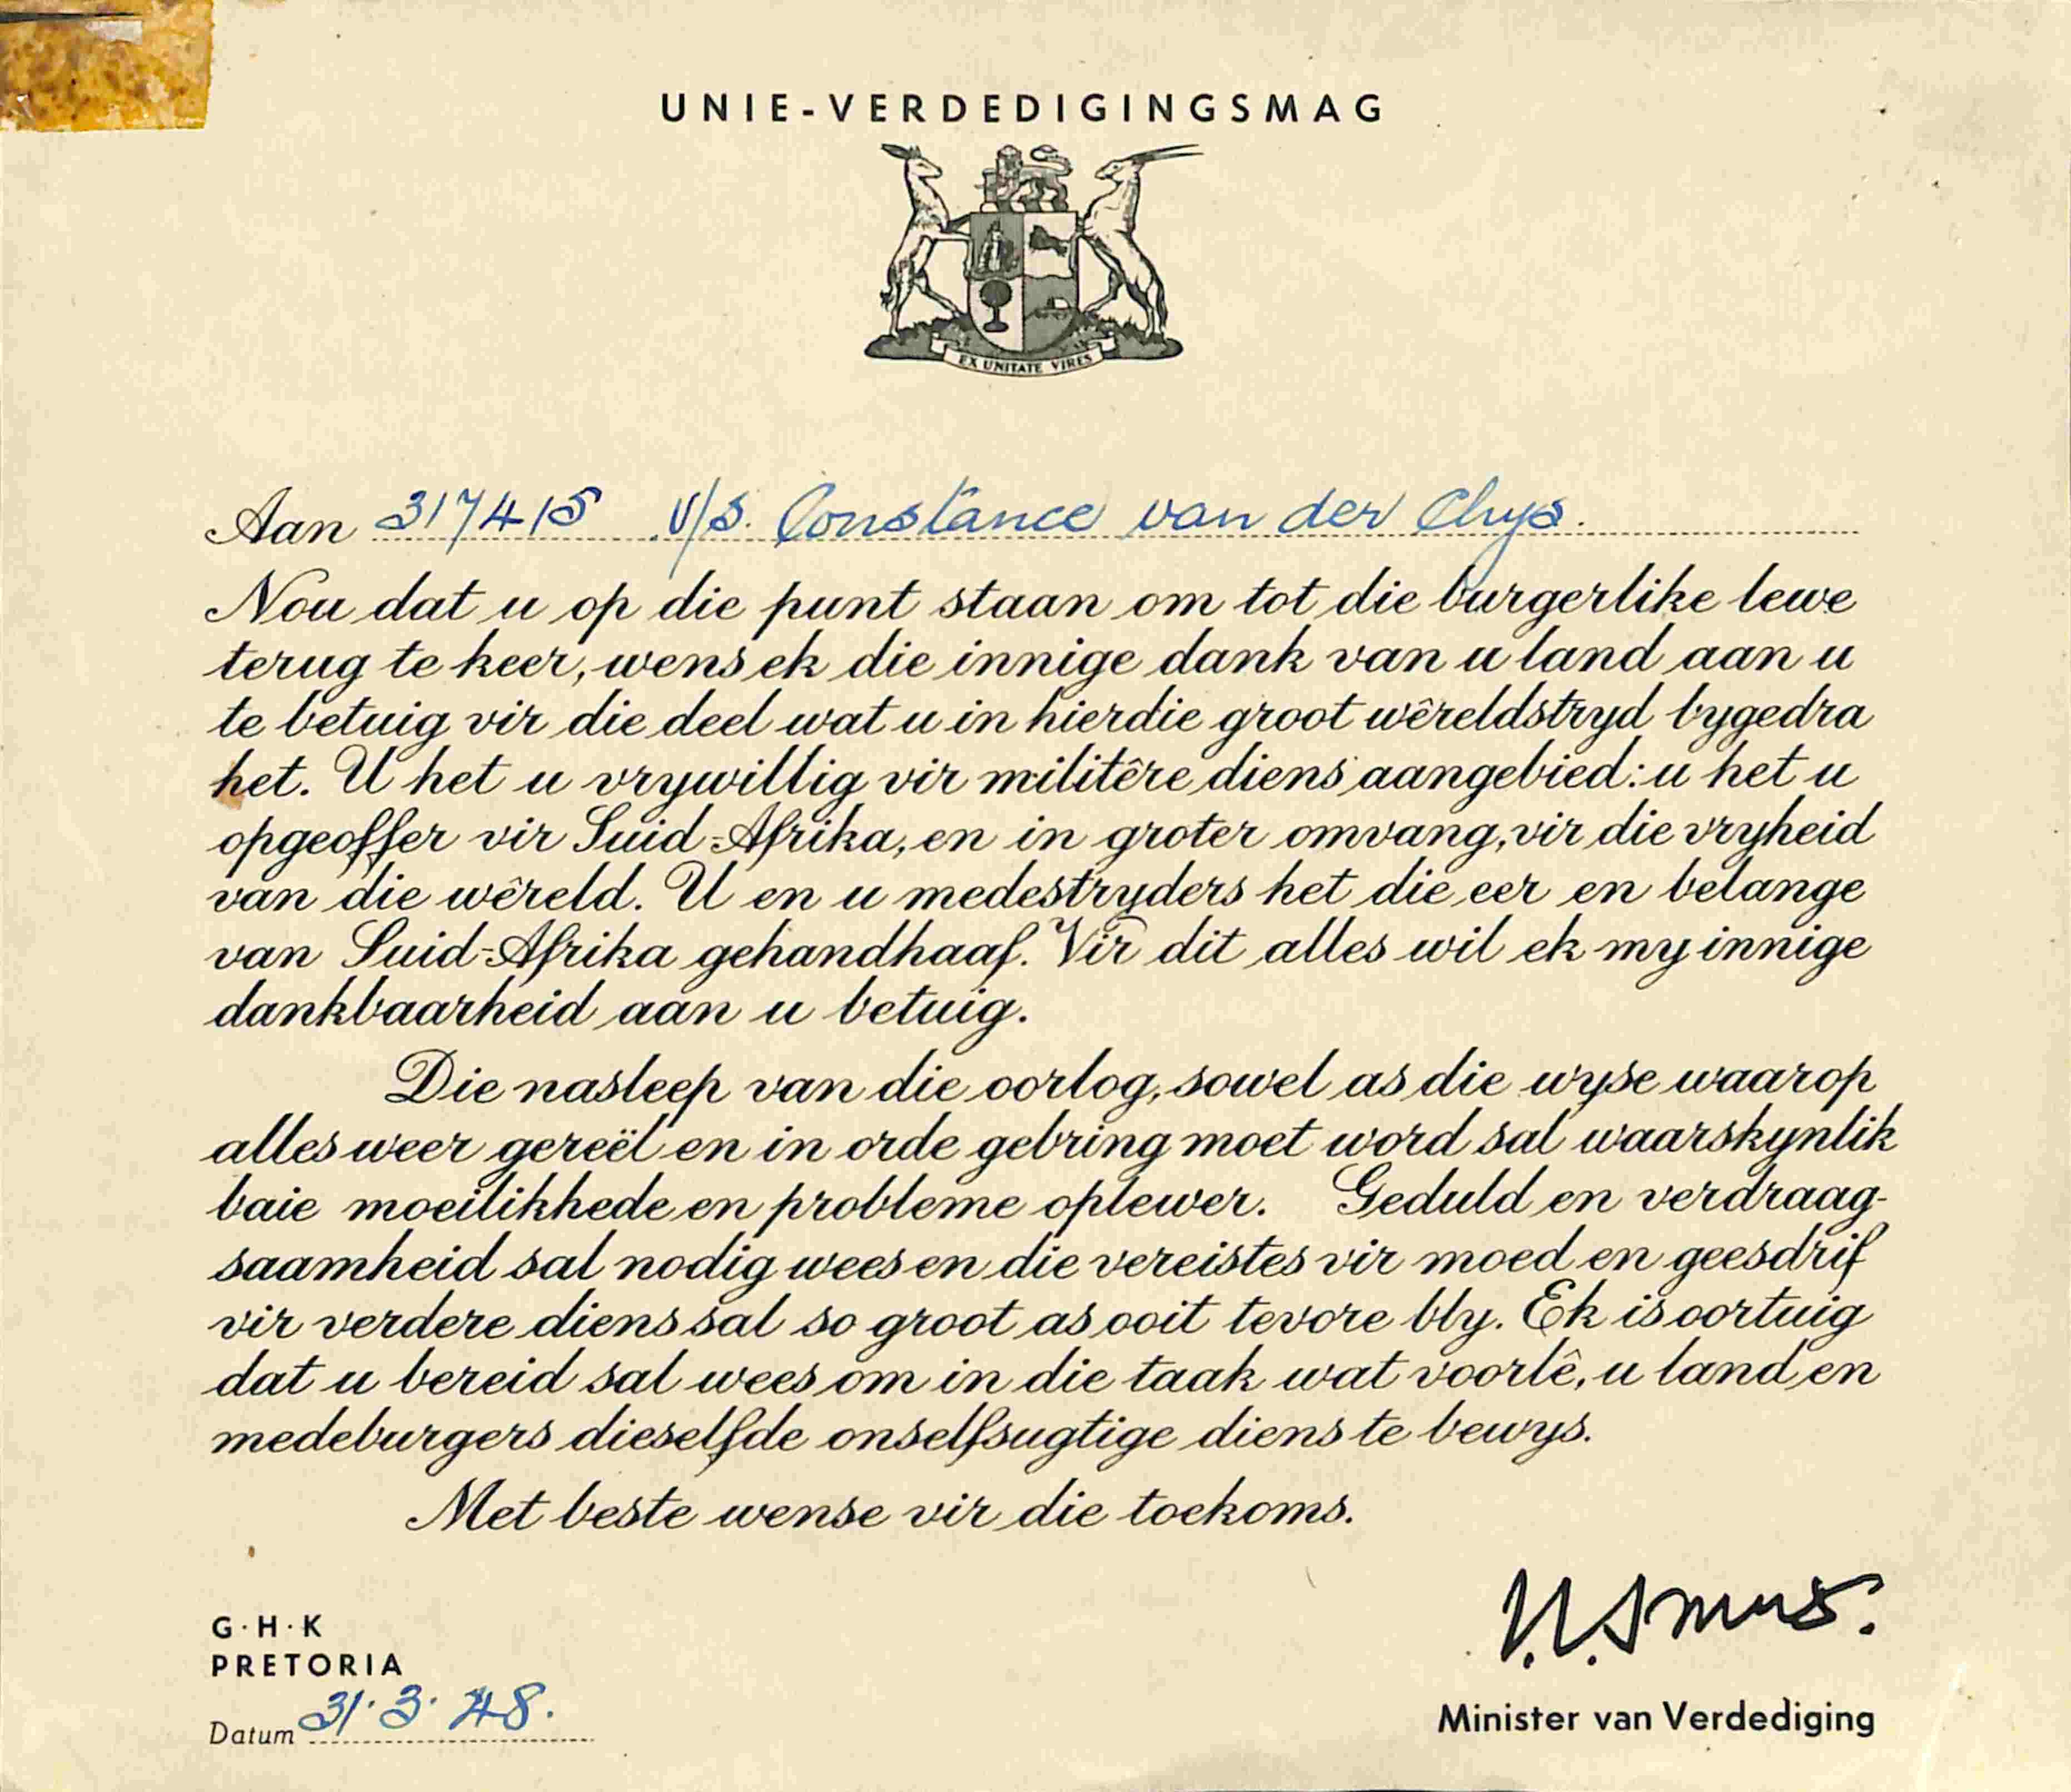 UNIE-VERDEDIGINGSMAG
EX UNITATE VIRES
Aan 317415 V/S. Constance van der
Nou dat u op die punt staan om tot die burgerlike lewe
terug te keer, wens ek die innige dank van u land aan u
te betuig vir die deel wat u in hierdie groot wêreldstryd bygedra
het. U het u vrywillig vir militêre diens aangebied: u het u
opgeoffer vir Suid-Afrika, en in groter omvang, vir die vryheid
van die wêreld. U en u medestryders het die eer en belange
van Suid-Afrika gehandhaaf. Vir dit alles wil ek my innige
dankbaarheid aan u betuig.
Die nasleep van die oorlog, sowel as die wyse waarop
alles weer gereël en in orde gebring moet word sal waarskynlik
baie moeilikhede en probleme oplewer. Geduld en verdraag-
saamheid sal nodig wees en die vereistes vir moed en geesdrif
vir verdere diens sal so groot as ooit tevore bly. Ek is oortuig
dat u bereid sal wees om in die taak wat voorlê, u land en
medeburgers dieselfde onselfsugtige diens te bewys.
Met beste wense vir die toekoms.
G·H·K
PRETORIA
Datum 31·3·48.
Minister van Verdediging